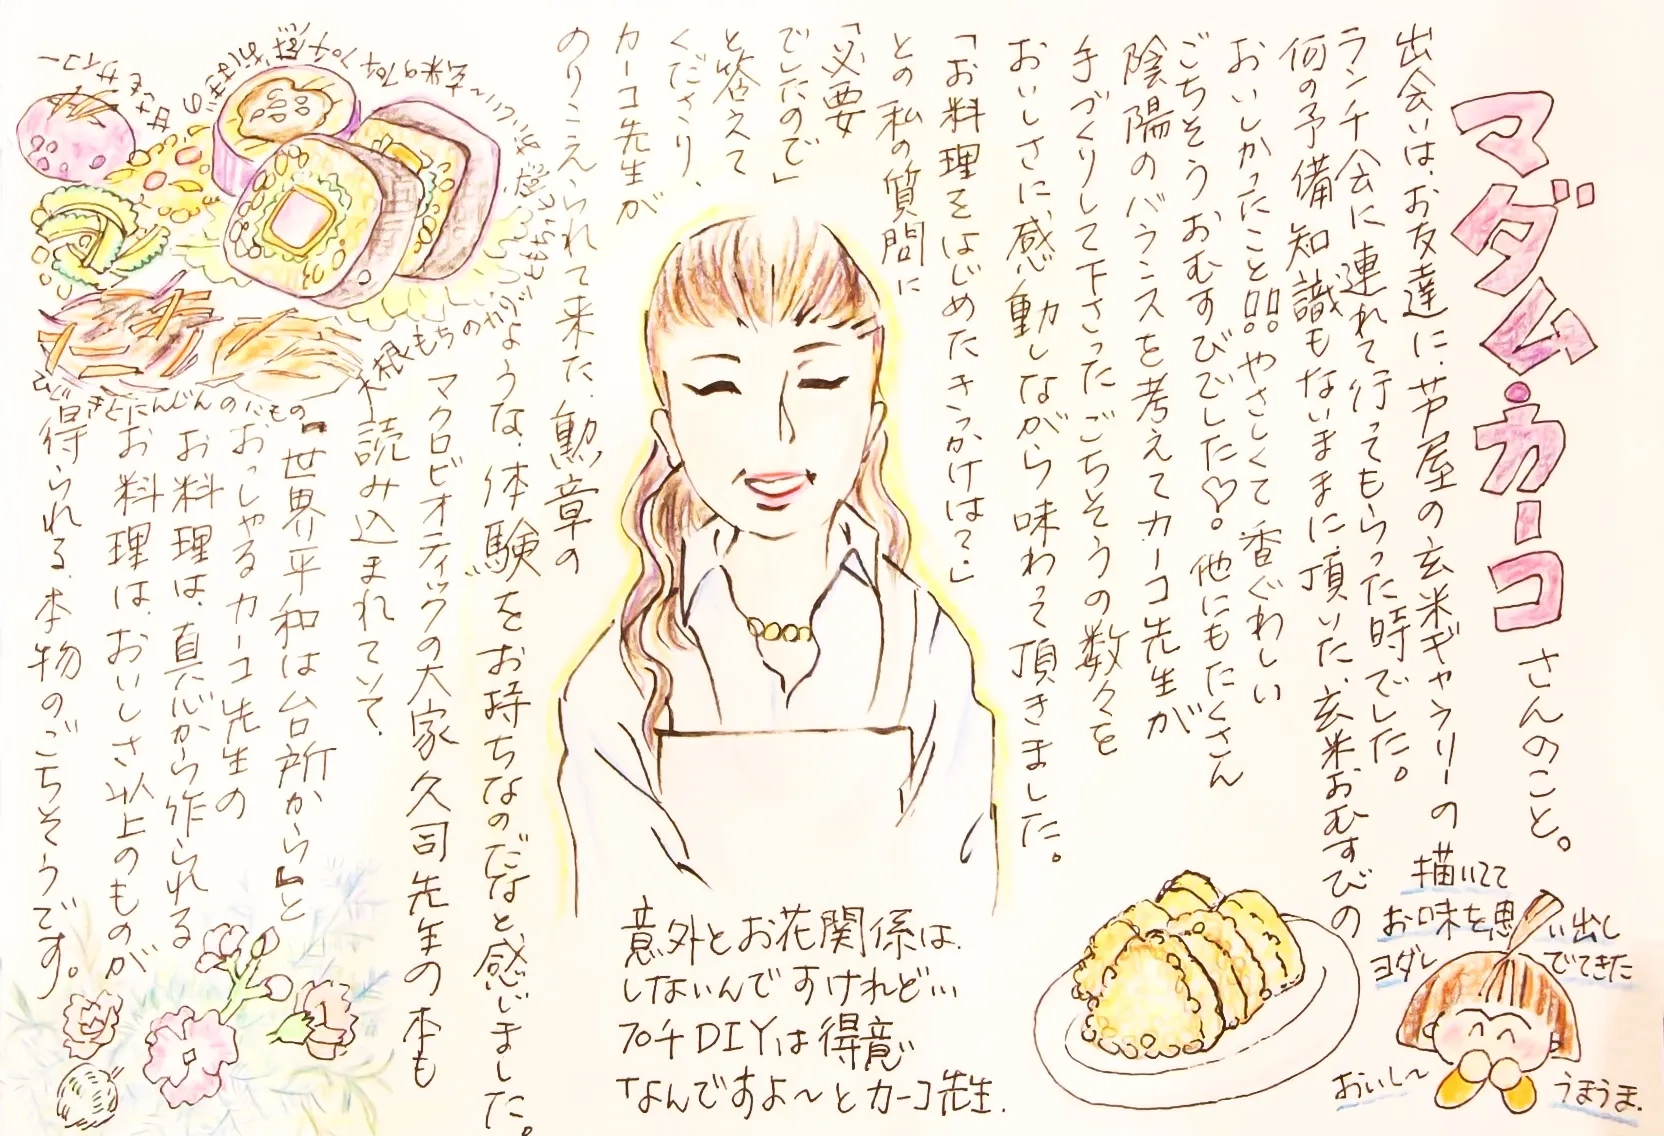 マダム・カーコ さんのこと。
出会いは、お友達に、芦屋の玄米ギャラリーの
ランチ会に連れて行ってもらった時でした。
何の予備知識もないままに頂いた、玄米おむすびの
おいしかったこと!!やさしくて香ぐわしい
ごちそうおむすびでした♡。他にもたくさん
陰陽のバランスを考えてカーコ先生が
手づくりして下さったごちそうの数々を
おいしさに感動しながら味わって頂きました。
「お料理をはじめたきっかけは？」
との私の質問に
「必要
でしたので」
と答えて
くださり、
カーコ先生が
のりこえられて来た、勲章の
ような、体験をお持ちなのだなと感じました。
マクロビオティックの大家久司先生の本も
読み込まれていて、
『世界平和は台所から』と
おっしゃるカーコ先生の
お料理は、真心から作られる
お料理は、おいしさ以上のものが
得られる、本物のごちそうです。
大根もちの
ひじきとにんじんのにもの
意外とお花関係は、
しないんですけれど…
プチDIYは得意
なんですよ〜とカーコ先生.
描いてて
お味を思い出し
ヨダレ でてきた
おいし〜
うまうま.